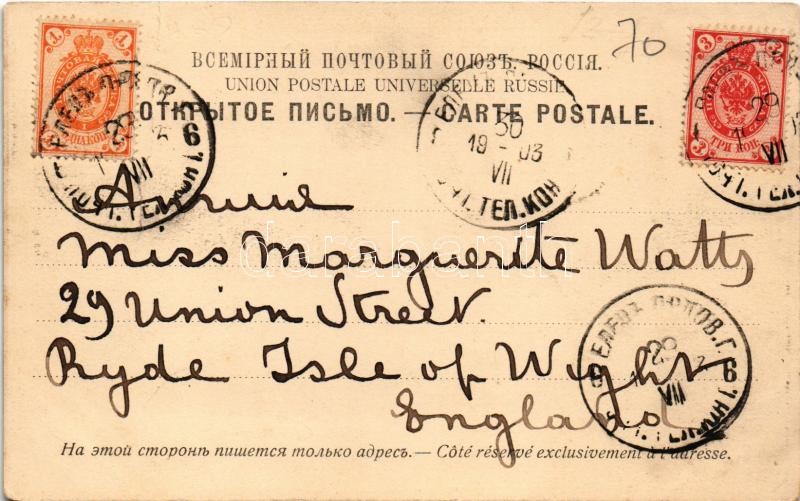 70
ВСЕМІРНЫЙ ПОЧТОВЫЙ СОЮЗЪ. РОССІЯ.
UNION POSTALE UNIVERSELLE RUSSIE
ОТКРЫТОЕ ПИСЬМО. — CARTE POSTALE.
30
19 - 03
VII
ТЕЛ. КОН
ТРИ КОП.
Англія
Miss Marguerite Watts
29 Union Street.
Ryde Isle of Wight
England
VII
darabanth
На этой сторонѣ пишется только адресъ. — Côté réservé exclusivement à l'adresse.